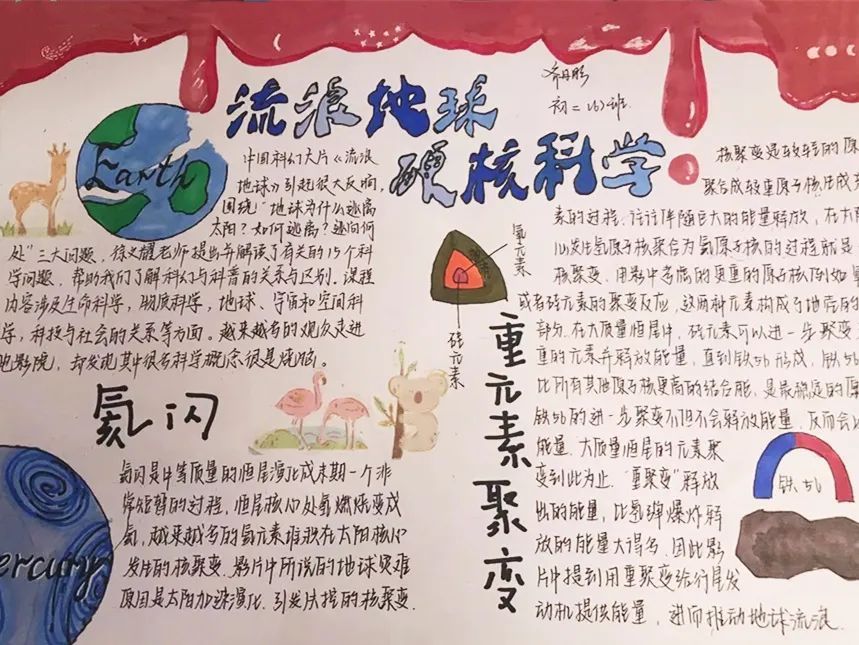 流浪地球
硬核科学
初二(6)班
Earth
中国科幻大片《流浪
地球》引起很大反响,
围绕"地球为什么逃离
太阳?如何逃离?逃向何
处"三大问题,徐义耀老师提出并解读了有关的15个科
学问题,帮助我们了解科幻与科普的关系与区别。课程
内容涉及生命科学,物质科学,地球、宇宙和空间科
学,科技与社会的关系等方面。越来越多的观众走进
电影院,却发现其中很多科学概念很是烧脑。
氦闪
氦闪是中等质量的恒星演化成末期一个非
常短暂的过程,恒星核心处氢燃烧变成
氦,越来越多的氦元素堆积在太阳核心
发生的核聚变.影片中所说的地球灾难
原因是太阳加速演化.引发片提的核聚变.
ercury
氢元素
硅元素
重元素聚变
核聚变是较轻的原
聚合成较重原子核生成
素的过程.往往伴随巨大的能量释放,在太
以发生氢原子核聚合为氦原子核的过程就是
核聚变.电影中考虑的更重的原子核例如
或者硅元素的聚变反应,这两种元素构成了地壳的
部分.在大质量恒星中,硅元素可以进一步聚变
重的元素并释放能量,直到铁56形成,铁5
比所有其他原子核更高的结合能,是最稳定的原
铁56的进一步聚变不但不会释放能量,反而会
能量.大质量恒星的元素聚
变到此为止."重聚变"释放
出的能量,比氢弹爆炸释
放的能量大得多.因此影
片中提到用重聚变给行星发
动机提供能量,进而推动地球流浪.
铁56